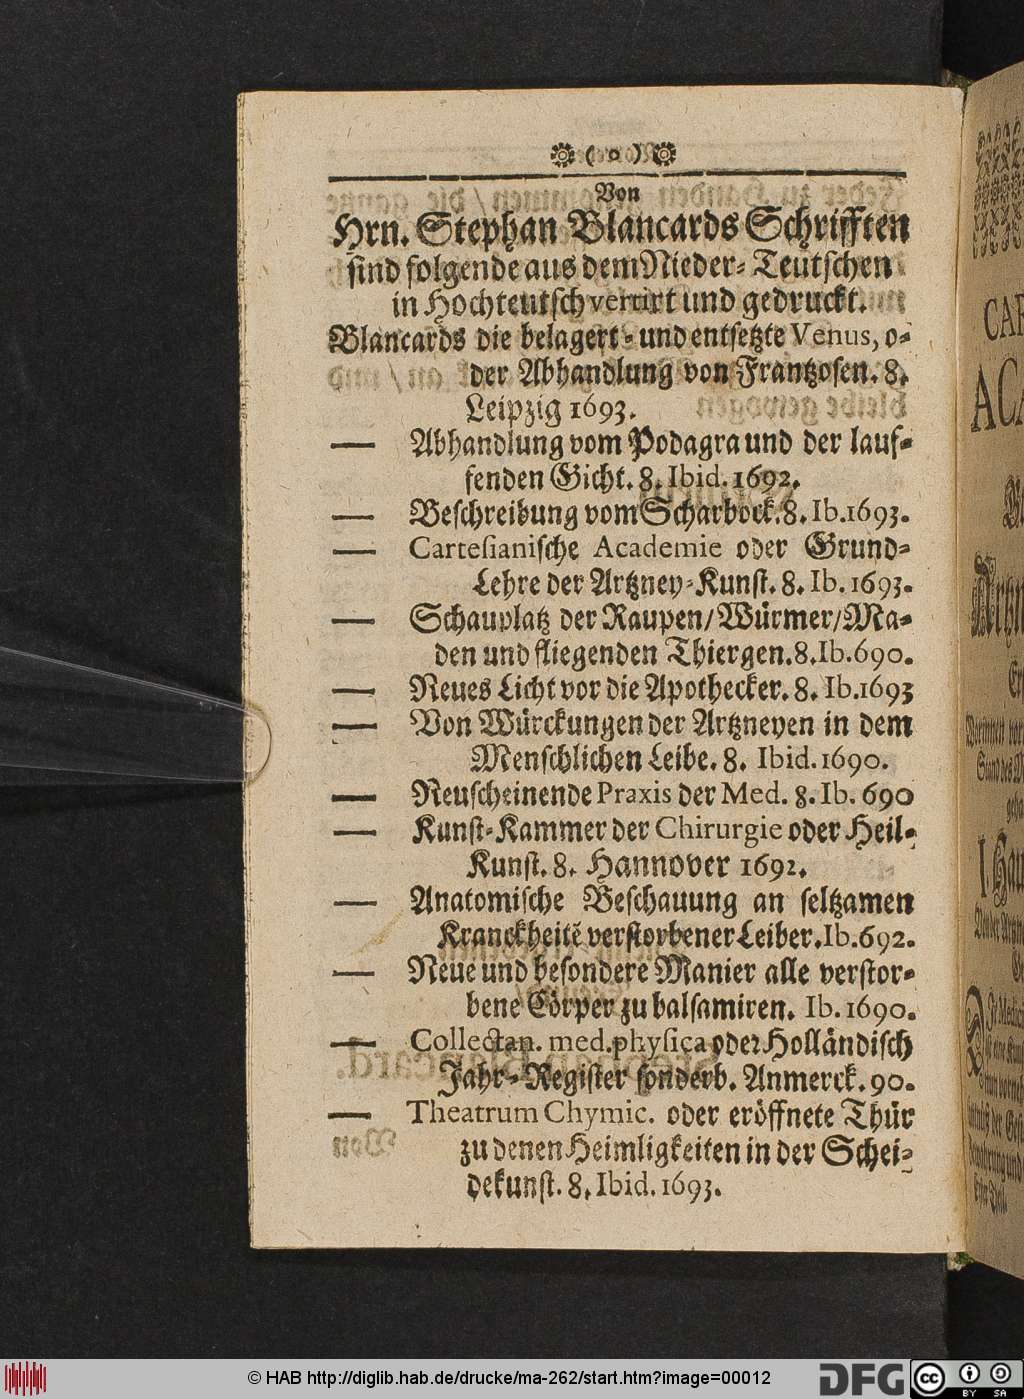 ( o )
Von
Hrn. Stephan Blancards Schrifften
sind folgende aus dem Nieder-Teutschen
in Hochteutsch vertirt und gedruckt.
Blancards die belagert- und entsetzte Venus, o-
der Abhandlung von Frantzosen. 8.
Leipzig 1693.
— Abhandlung vom Podagra und der lauf-
fenden Gicht. 8. Ibid. 1692.
— Beschreibung vom Scharbock. 8. Ib. 1693.
— Cartesianische Academie oder Grund-
Lehre der Artzney-Kunst. 8. Ib. 1693.
— Schauplatz der Raupen/Würmer/Ma-
den und fliegenden Thiergen. 8. Ib. 690.
— Neues Licht vor die Apothecker. 8. Ib. 1693
— Von Würckungen der Artzneyen in dem
Menschlichen Leibe. 8. Ibid. 1690.
— Neuscheinende Praxis der Med. 8. Ib. 690
— Kunst-Kammer der Chirurgie oder Heil-
Kunst. 8. Hannover 1692.
— Anatomische Beschauung an seltzamen
Kranckheitē verstorbener Leiber. Ib. 692.
— Neue und besondere Manier alle verstor-
bene Cörper zu balsamiren. Ib. 1690.
— Collectan. med. physica oder Holländisch
Jahr-Register sonderb. Anmerck. 90.
— Theatrum Chymic. oder eröffnete Thür
zu denen Heimligkeiten in der Schei-
dekunst. 8. Ibid. 1693.
© HAB http://diglib.hab.de/drucke/ma-262/start.htm?image=00012
DFG
cc BY SA